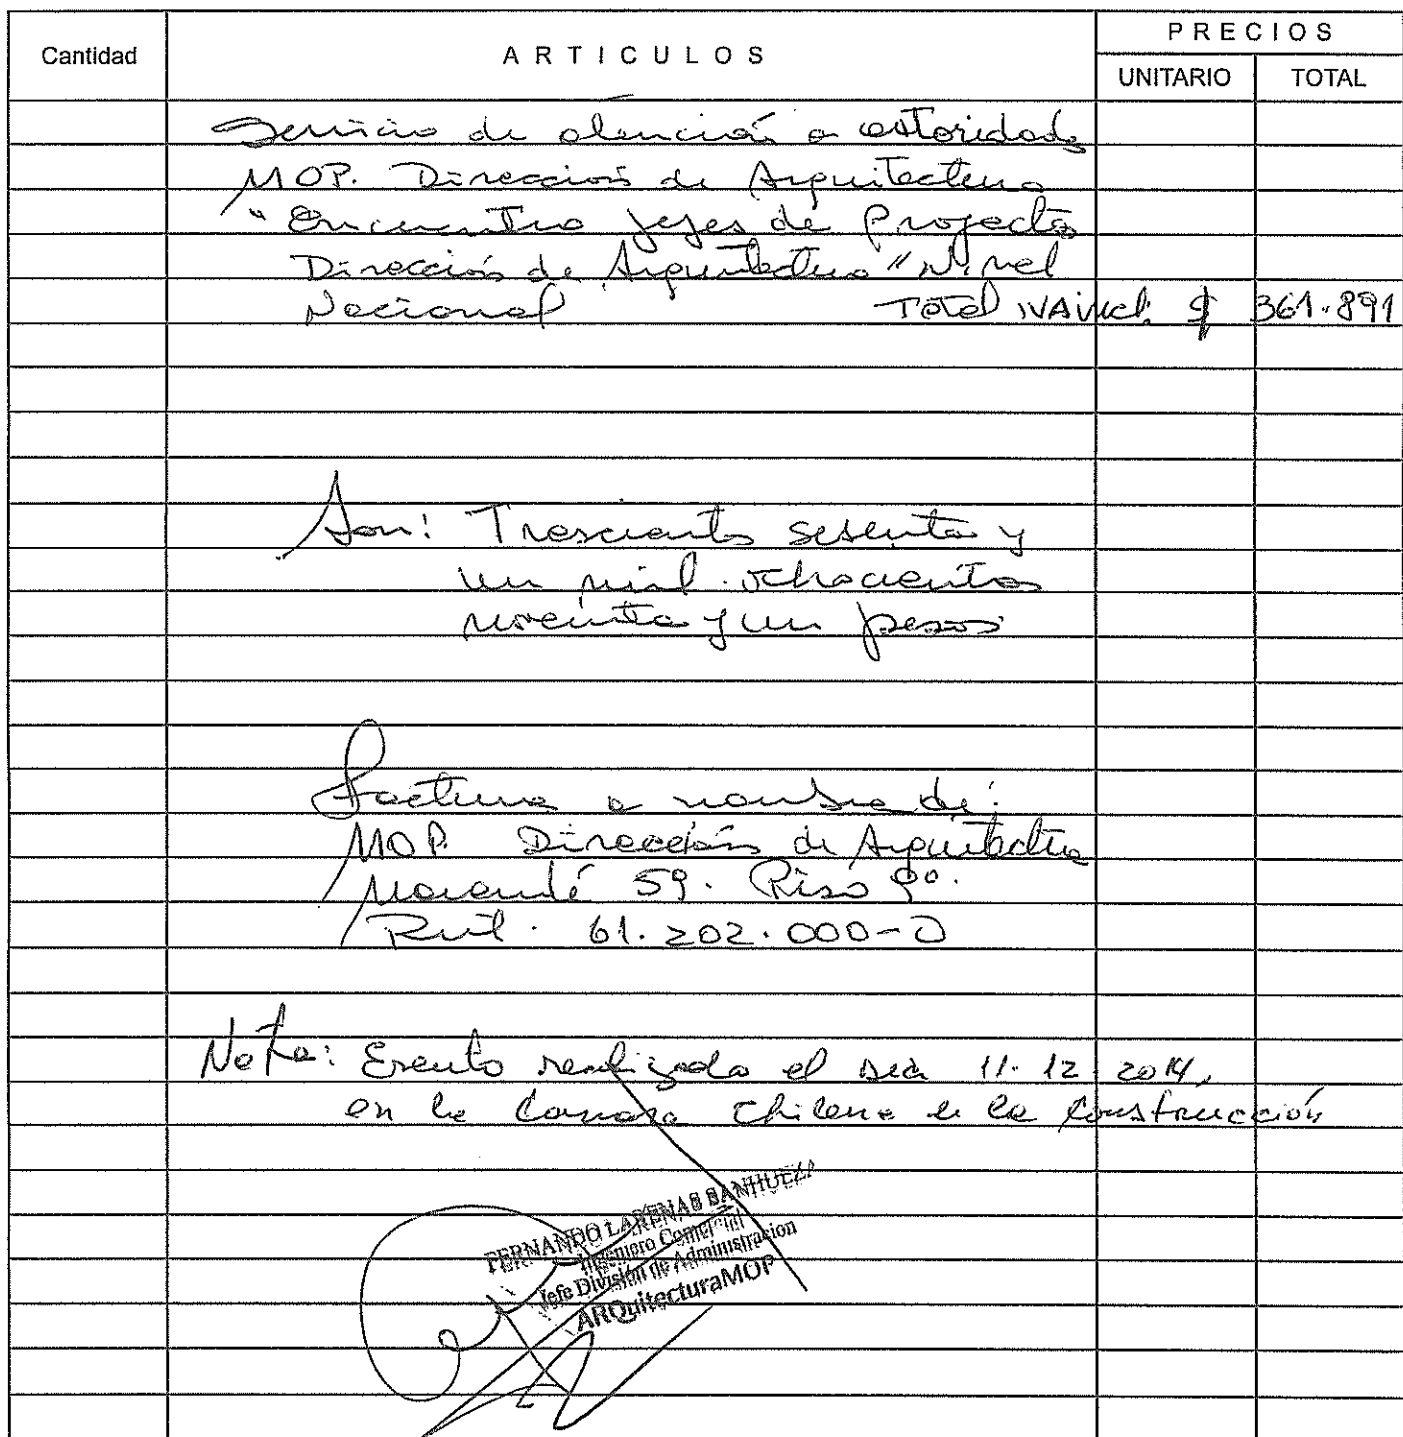 Cantidad
ARTICULOS
PRECIOS
UNITARIO
TOTAL
Servicio de atención a autoridades
MOP. Dirección de Arquitectura
"Encuentro jefes de Proyectos
Dirección de Arquitectura" Nivel
Nacional Total IVA incl. $ 361.891
Son: Trescientos sesenta y
un mil ochocientos
noventa y un pesos
Factura a nombre de:
MOP. Dirección de Arquitectura
Morandé 59. Piso 9º.
Rut. 61.202.000-0
Nota: Evento realizado el dia 11.12.2014,
en la Camara Chilena de la Construcción
FERNANDO LARENAS SANHUEZA
Ingeniero Comercial
Jefe División de Administracion
ARQuitecturaMOP